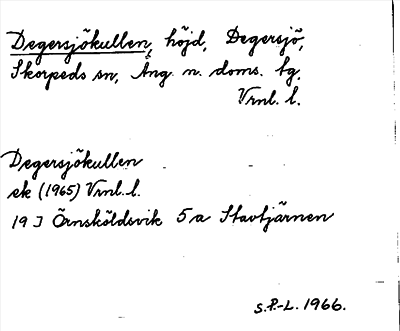 Degersjökullen, höjd, Degersjö,
Skorpeds sn, Ång. n. doms. tg.
Vrnl. l.
Degersjökullen
ek (1965) Vrnl. l.
19 J Örnsköldsvik 5 a Stavtjärnen
S.P.-L. 1966.